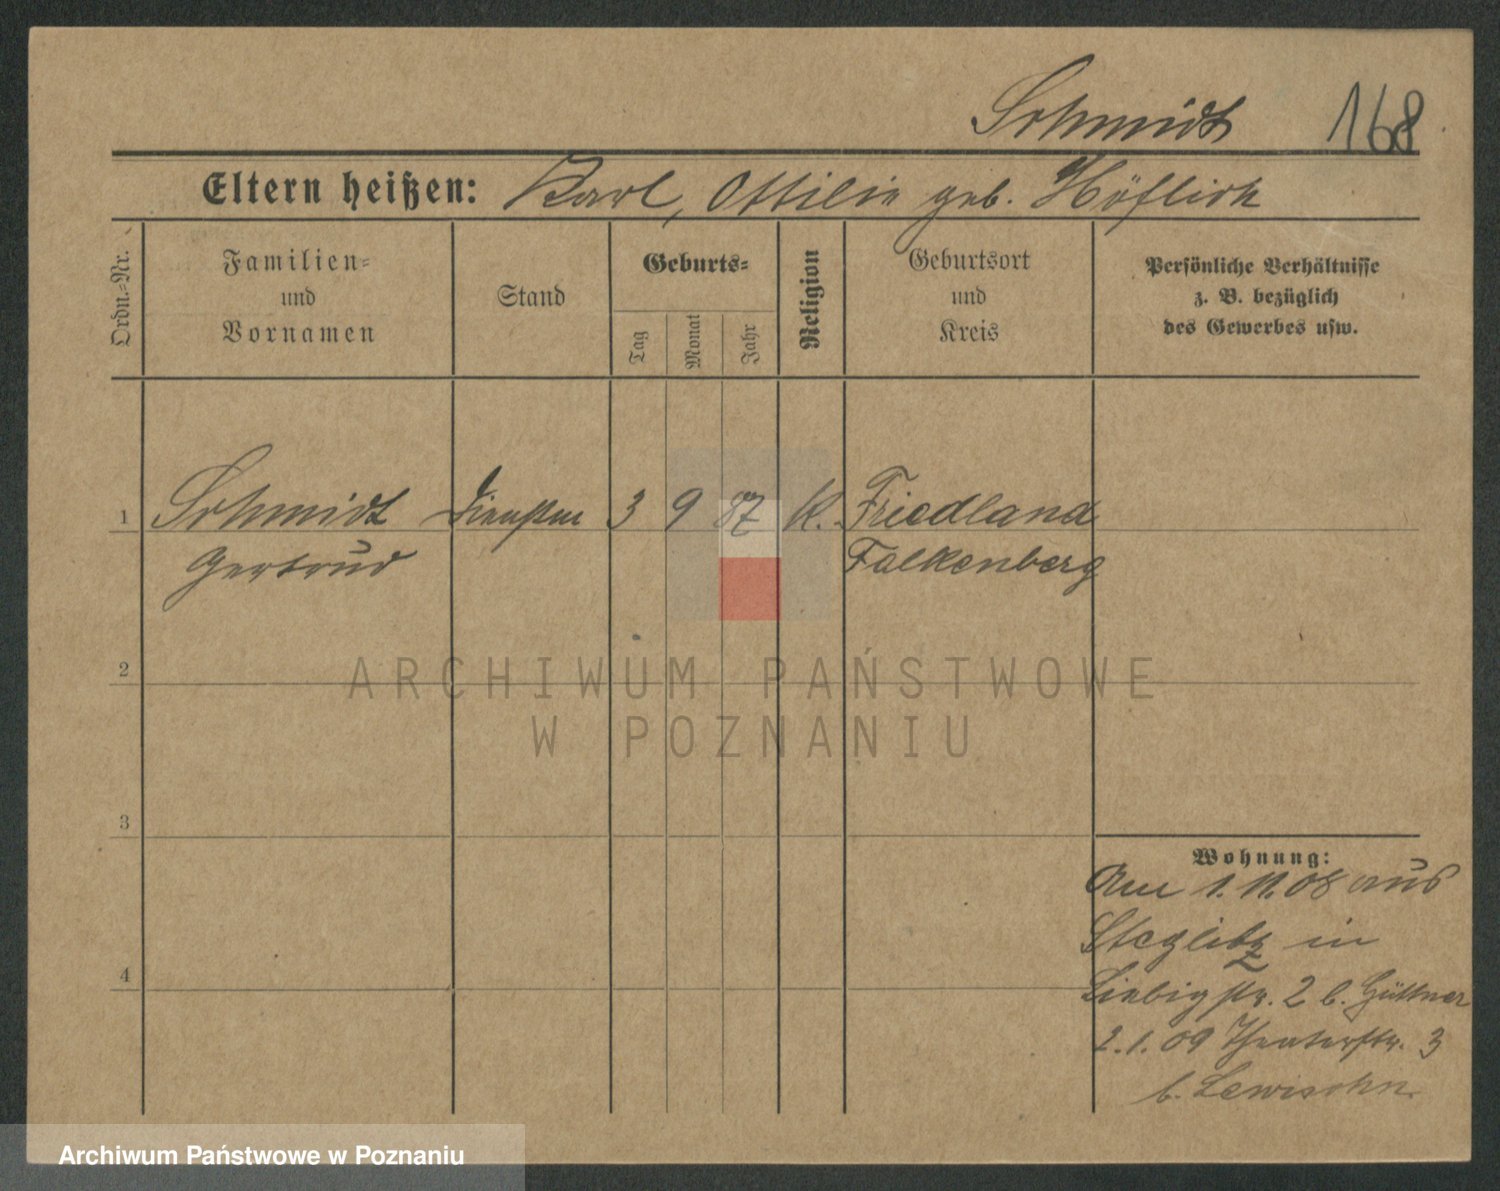 Schmidt 168
Eltern heißen: Karl, Ottilie geb. Höflich
Ordn.-Nr.
Familien-
und
Vornamen
Stand
Geburts-
Tag
Monat
Jahr
Religion
Geburtsort
und
Kreis
Persönliche Verhältnisse
z. B. bezüglich
des Gewerbes usw.
1 Schmidt 3 9 87 K. Friedland
Gertrud Falkenberg
2
3
4
ARCHIWUM PAŃSTWOWE
W POZNANIU
Wohnung:
Am 1.11.08 aus
Steglitz in
Liebigstr. 2 b. Güttner
2.1.09 Theaterstr. 3
b. Lewisohn
Archiwum Państwowe w Poznaniu